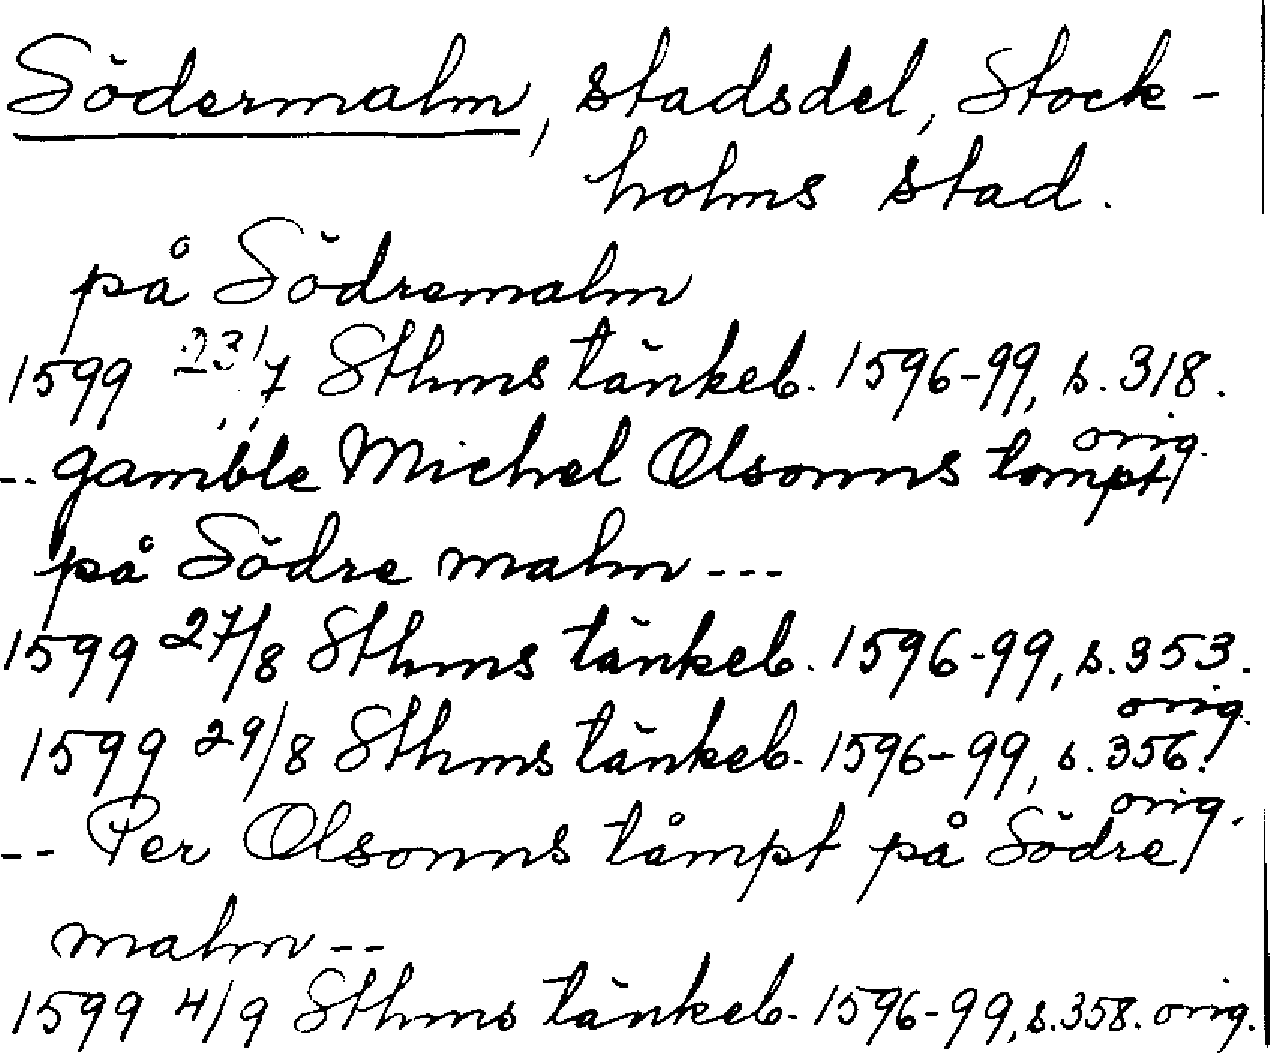 Södermalm, stadsdel, Stock-
holms stad.
på Södremalm
1599 23/7 Sthms tänkeb. 1596-99, s. 318.
orig.
-- gamble Michel Olsonns tompt
på Södre malm ---
1599 27/8 Sthms tänkeb. 1596-99, s. 353.
orig.
1599 29/8 Sthms tänkeb. 1596-99, s. 356.
orig.
-- Per Olsonns tåmpt på Södre
malm --
1599 4/9 Sthms tänkeb. 1596-99, s. 358. orig.